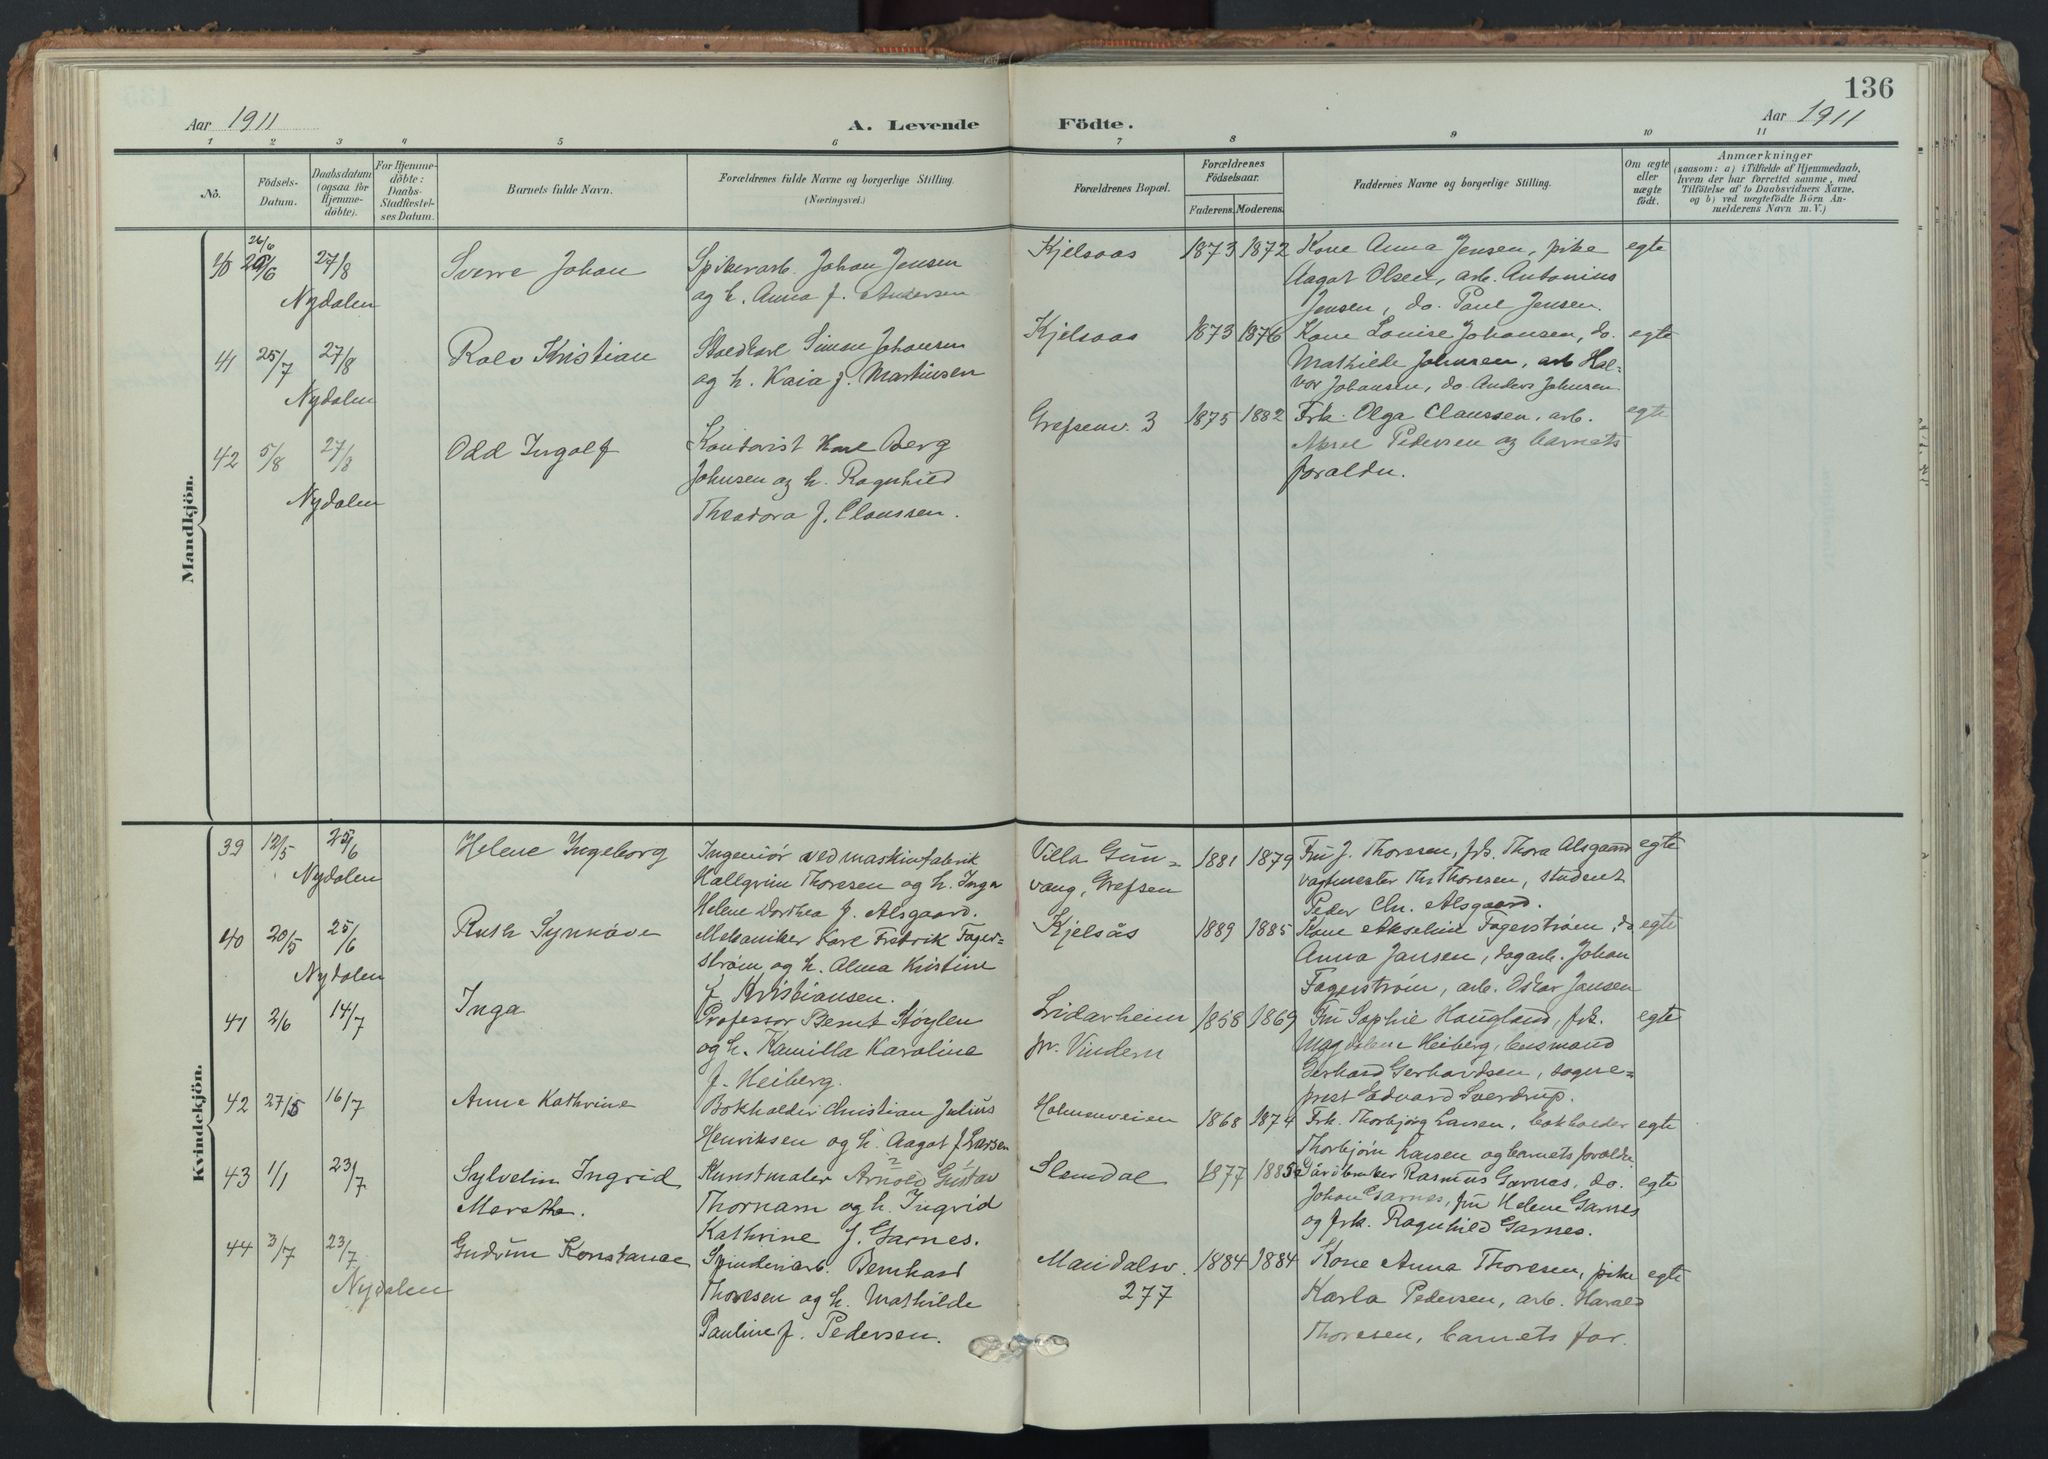 136
Aar 1911
A. Levende Födte.
Aar 1911
1 2 3 4 5 6 7 8 9 10 11
No.
Födsels-
Datum.
Daabsdatum
(ogsaa for
Hjemme-
döbte).
For Hjemme-
döbte:
Daabs-
Stadfæstel-
ses Datum.
Barnets fulde Navn.
Forældrenes fulde Navne og borgerlige Stilling.
(Næringsvei.)
Forældrenes Bopæl.
Forældrenes
Födselsaar.
Faderens. Moderens.
Faddernes Navne og borgerlige Stilling.
Om ægte
eller
uægte
födt.
Anmærkninger
(saasom: a) i Tilfælde af Hjemmedaab,
hvem der har forrettet samme, med
Tilföielse af to Daabsvidners Navne,
og b) ved uægtefödte Börn An-
melderens Navn m. V.)
Mandkjön.
40 26/6 27/8
Nydalen
Sverre Johan
Spikerarb. Johan Jensen
og h. Anna f. Andersen
Kjelsaas
1873 1872
Kone Anna Jensen, pike
Aagot Olsen, arb. Antonius
Jensen, do. Paul Jensen.
egte
41 25/7 27/8
Nydalen
Rolv Kristian
Staldkarl Simon Johansen
og h. Kaia f. Martinsen
Kjelsaas
1873 1876
Kone Louise Johansen, do.
Mathilde Johnsen, arb Hal-
vor Johansen, do. Anders Johnsen
egte
42 5/8 27/8
Nydalen
Odd Ingolf
Kontorist Karl Berg
Johnsen og h. Ragnhild
Theodora f. Claussen.
Grefsenv. 3
1875 1882
Frk. Olga Claussen, arb.
Aksel Pedersen og barnets
forældre.
egte
Kvindekjön.
39 12/5 25/6
Nydalen
Helene Ingeborg
Ingeniør ved maskinfabrik
Hallgrim Thoresen og h. Inga
Helene Dorthea f. Alsgaard.
Villa Gun-
vang, Grefsen
1881 1879
Fru J. Thoresen, frk. Thora Alsgaard
vagtmester Th. Thoresen, student
Peder Chr. Alsgaard.
egte
40 20/5 25/6
Nydalen
Ruth Synnøve
Mekaniker Karl Fredrik Fager-
strøm og h. Alma Kristine
f. Kristiansen.
Kjelsås
1889 1885
Kone Akseline Fagerstrøm, do
Anna Jansen, dagarb. Johan
Fagerstrøm, arb. Oskar Jansen
egte
41 2/6 14/7
Inga
Professor Bernt Støylen
og h. Kamilla Karoline
f. Heiberg.
Lidarheim
pr. Vindern
1858 1869
Fru Sophie Haugland, frk.
Magdalene Heiberg, lensmand
Gerhard Gerhardsen, sogne-
prest Edvard Sverdrup.
egte
42 27/5 16/7
Anne Kathrine
Bokholder Christian Julius
Henriksen og h. Aagot f. Larsen
Holmenveien
1868 1874
Frk. Thorbjørg Larsen, bokholder
Thorbjørn Larsen og barnets forældre.
egte
43 1/1 23/7
Sylvelin Ingrid
Maretha.
Kunstmaler Arnold Gustav
Thornam og h. Ingrid
Kathrine f. Garnes.
Slemdal
1877 1885
Gårdbruker Rasmus Garnes, do.
Johan Garnes, fru Helene Garnes
og frk. Ragnhild Garnes.
egte
44 3/7 23/7
Nydalen
Gudrun Konstance
Spinderiarb. Bernhard
Thoresen og h. Mathilde
Pauline f. Pedersen.
Maridalsv.
277
1884 1884
Kone Anna Thoresen, pike
Karla Pedersen, arb. Harald
Thoresen, barnets far.
egte